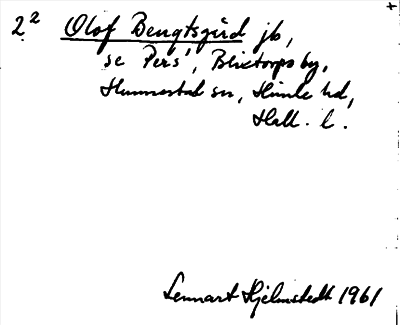 2² Olof Bengtsgård jb,
se Pers', Blixtorps by,
Hunnestad sn, Himle hd,
Hall. l.
Lennart Hjelmstedt 1961